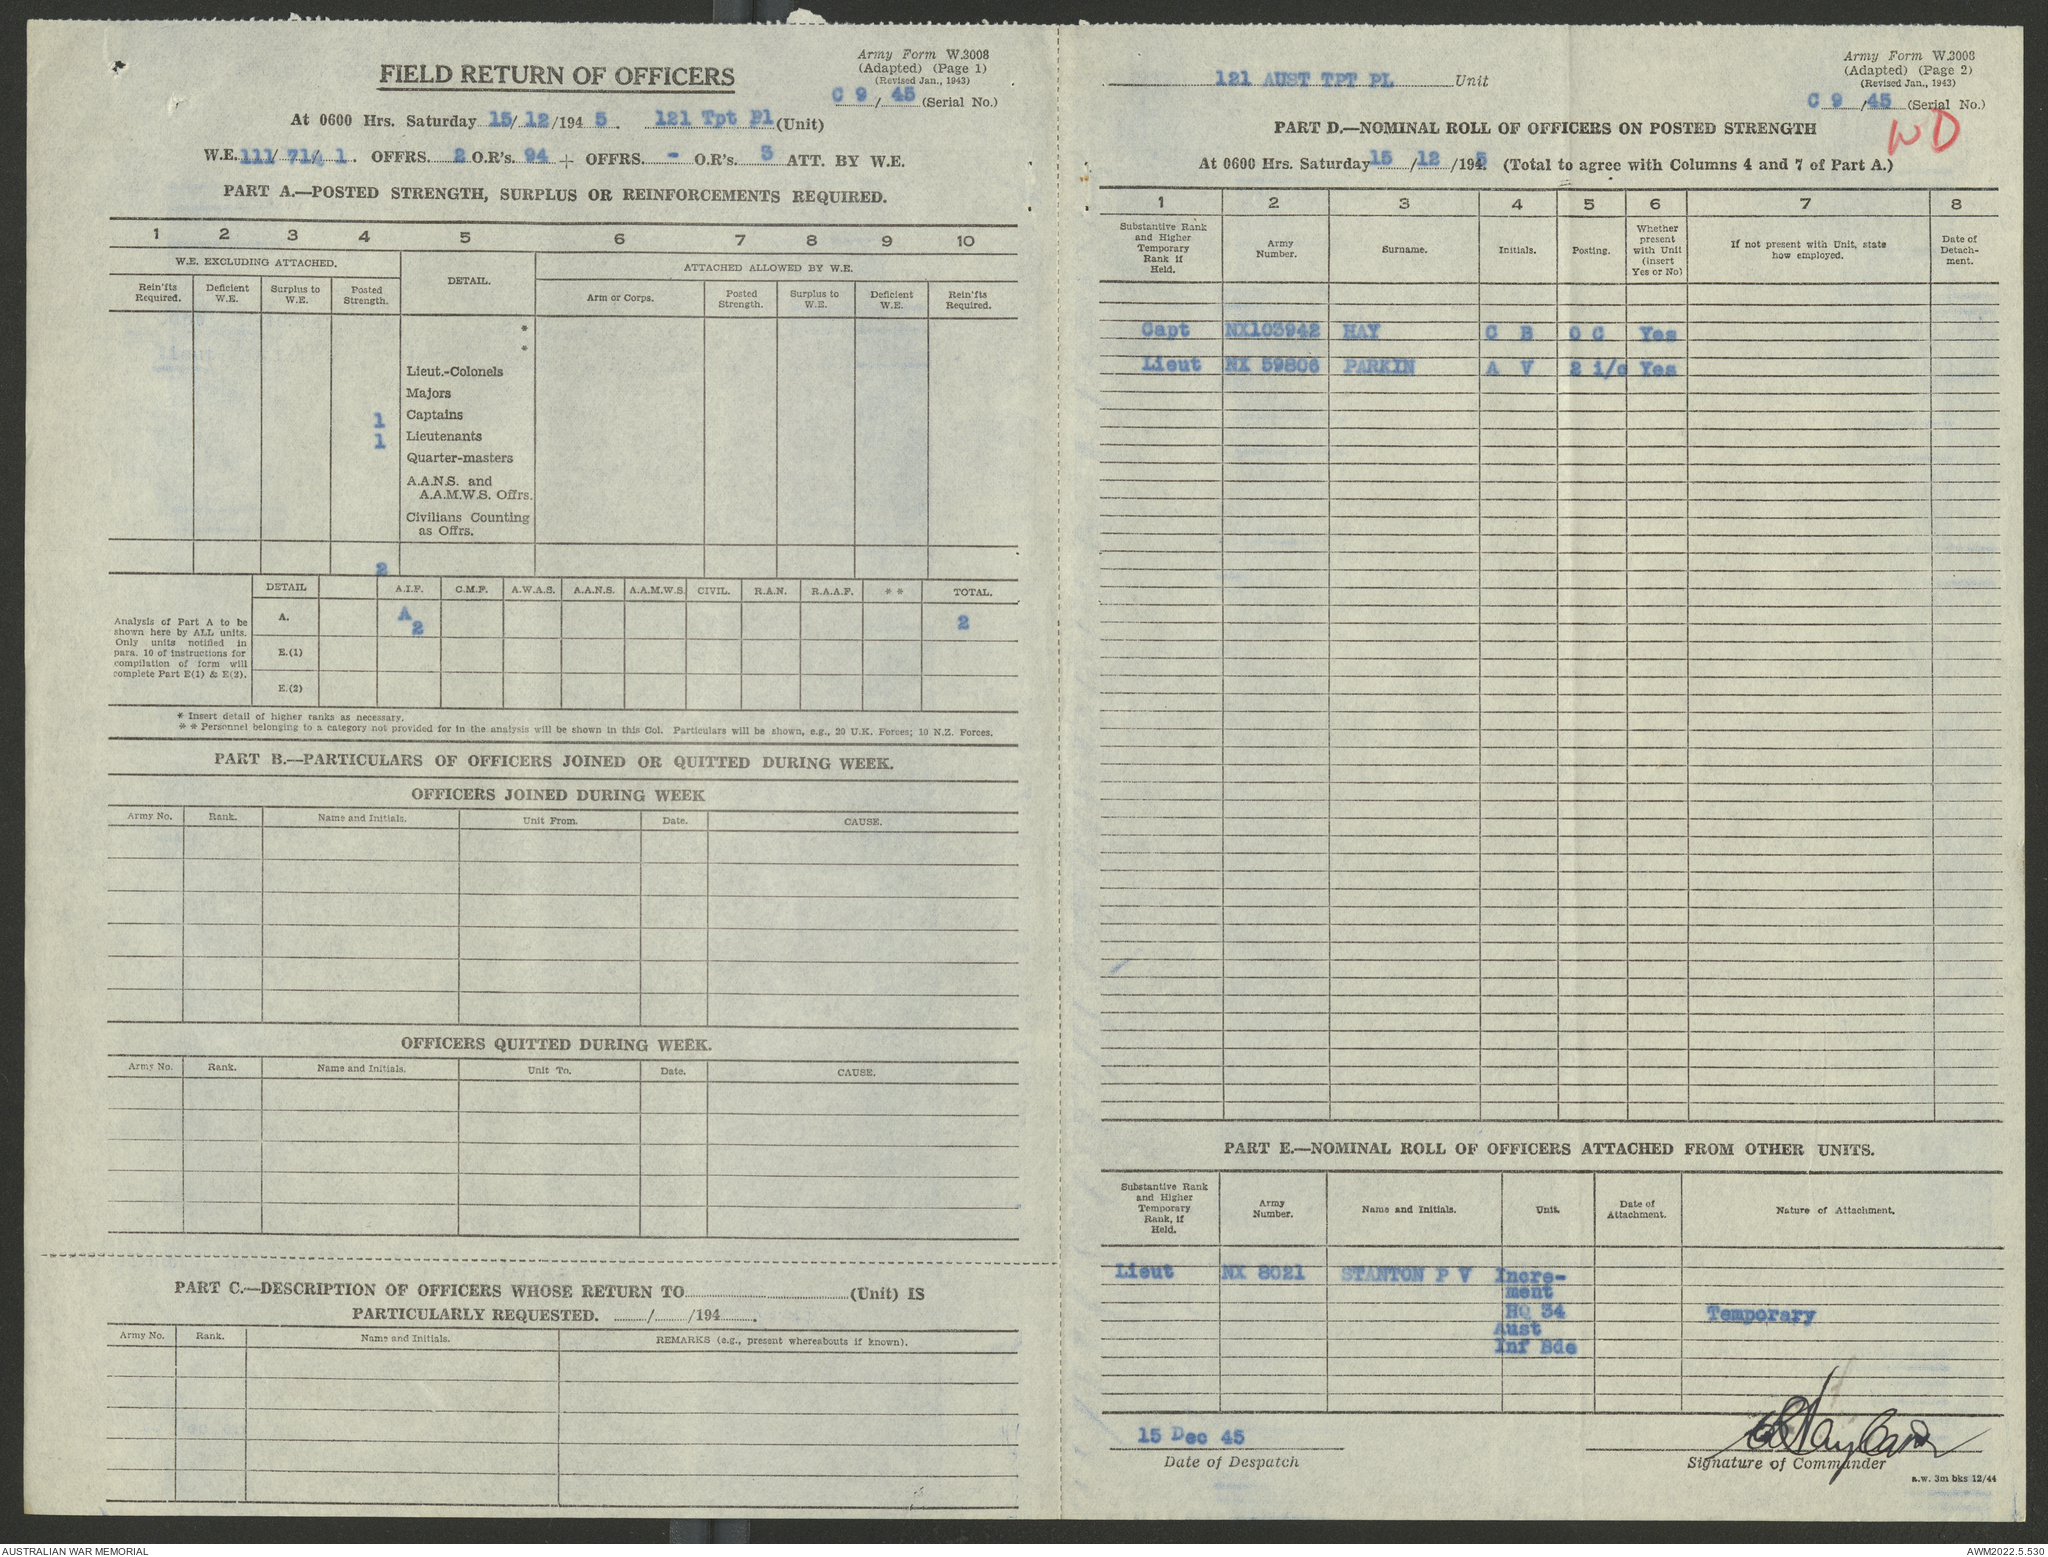 Army Form W.3008
(Adapted) (Page 1)
(Revised Jan., 1943)
FIELD RETURN OF OFFICERS
C 9 / 45 (Serial No.)
At 0600 Hrs. Saturday 15/12/1945. 121 Tpt Pl (Unit)
W.E. 111/ 71/ 1. OFFRS. 2 O.R's. 94 + OFFRS. - O.R's. 3 ATT. BY W.E.
PART A.—POSTED STRENGTH, SURPLUS OR REINFORCEMENTS REQUIRED.
1 2 3 4 5 6 7 8 9 10
W.E. EXCLUDING ATTACHED. DETAIL. ATTACHED ALLOWED BY W.E.
Rein'fts Required. Deficient W.E. Surplus to W.E. Posted Strength. Arm or Corps. Posted Strength. Surplus to W.E. Deficient W.E. Rein'fts Required.
*
*
Lieut.-Colonels
Majors
1 Captains
1 Lieutenants
Quarter-masters
A.A.N.S. and
A.A.M.W.S. Offrs.
Civilians Counting
as Offrs.
2
DETAIL A.I.F. C.M.F. A.W.A.S. A.A.N.S. A.A.M.W.S. CIVIL. R.A.N. R.A.A.F. * * TOTAL.
Analysis of Part A to be
shown here by ALL units.
Only units notified in
para. 10 of instructions for
compilation of form will
complete Part E(1) & E(2).
A. A 2 2
E.(1)
E.(2)
* Insert detail of higher ranks as necessary.
* * Personnel belonging to a category not provided for in the analysis will be shown in this Col. Particulars will be shown, e.g., 20 U.K. Forces; 10 N.Z. Forces.
PART B.—PARTICULARS OF OFFICERS JOINED OR QUITTED DURING WEEK.
OFFICERS JOINED DURING WEEK
Army No. Rank. Name and Initials. Unit From. Date. CAUSE.
OFFICERS QUITTED DURING WEEK.
Army No. Rank. Name and Initials. Unit To. Date. CAUSE.
PART C.—DESCRIPTION OF OFFICERS WHOSE RETURN TO (Unit) IS
PARTICULARLY REQUESTED. / /194 .
Army No. Rank. Name and Initials. REMARKS (e.g., present whereabouts if known).
Army Form W.3008
(Adapted) (Page 2)
(Revised Jan., 1943)
121 AUST TPT PL Unit
C 9 /45 (Serial No.)
WD
PART D.—NOMINAL ROLL OF OFFICERS ON POSTED STRENGTH
At 0600 Hrs. Saturday 15/12/1945 (Total to agree with Columns 4 and 7 of Part A.)
1 2 3 4 5 6 7 8
Substantive Rank and Higher Temporary Rank if Held. Army Number. Surname. Initials. Posting. Whether present with Unit (insert Yes or No) If not present with Unit, state how employed. Date of Detach-ment.
Capt NX103942 HAY C B O C Yes
Lieut NX 59806 PARKIN A V 2 i/c Yes
PART E.—NOMINAL ROLL OF OFFICERS ATTACHED FROM OTHER UNITS.
Substantive Rank and Higher Temporary Rank, if Held. Army Number. Name and Initials. Unit. Date of Attachment. Nature of Attachment.
Lieut NX 8021 STANTON P V Incre-
ment
HQ 34 Temporary
Aust
Inf Bde
15 Dec 45
Date of Despatch
CB Hay Capt
Signature of Commander
a.w. 3m bks 12/44
AUSTRALIAN WAR MEMORIAL
AWM2022.5.530